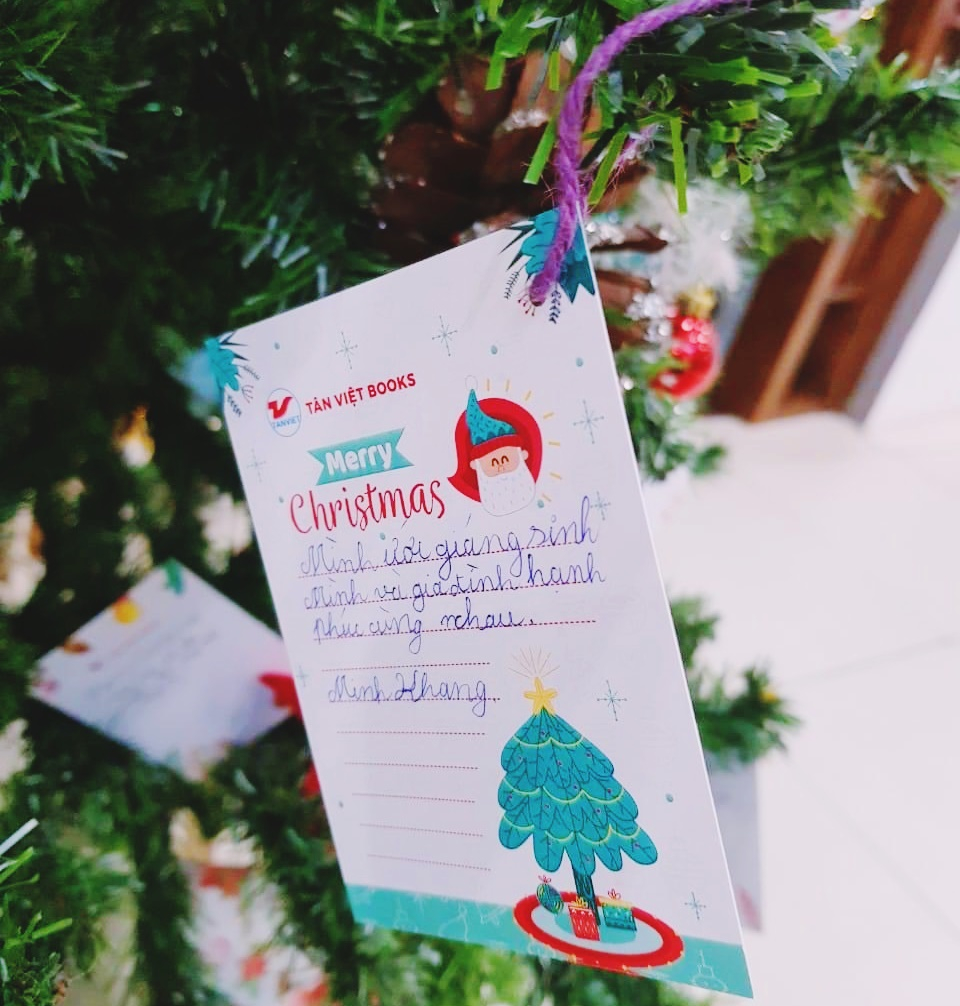 TÂN VIỆT BOOKS
TANVIET
Merry
Christmas
Mình ước giáng sinh
Mình và gia đình hạnh
phúc cùng nhau.
Minh Khang.